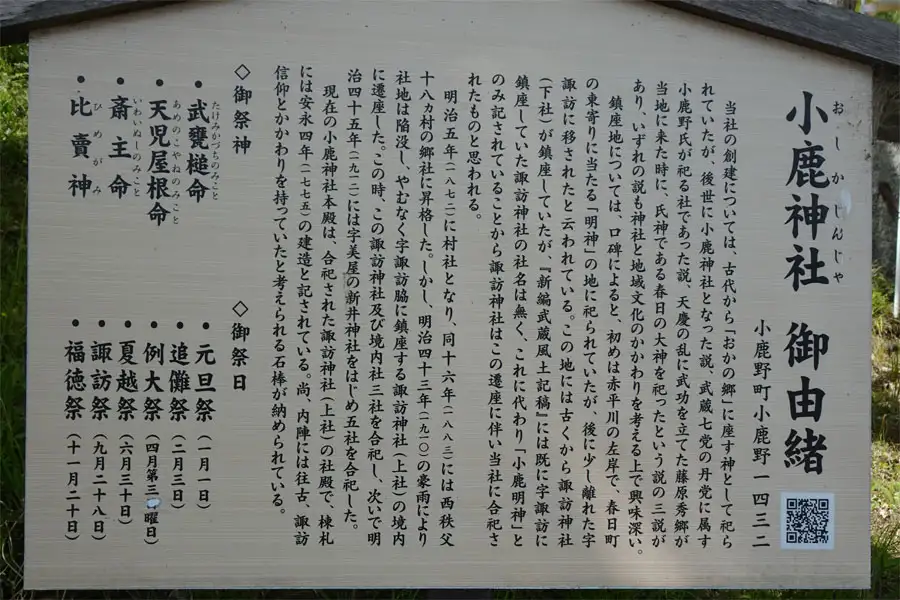 小鹿神社 御由緒
おしかじんじゃ
小鹿野町小鹿野一四三二
当社の創建については、古代から「おかの郷」に座す神として祀ら
れていたが、後世に小鹿神社となった説、武蔵七党の丹党に属す
小鹿野氏が祀る社であった説、天慶の乱に武功を立てた藤原秀郷が
当地に来た時に、氏神である春日の大神を祀ったという説の三説が
あり、いずれの説も神社と地域文化のかかわりを考える上で興味深い。
鎮座地については、口碑によると、初めは赤平川の左岸で、春日町
の東寄りに当たる「明神」の地に祀られていたが、後に少し離れた字
諏訪に移されたと云われている。この地には古くから諏訪神社
(下社)が鎮座していたが、『新編武蔵風土記稿』には既に字諏訪に
鎮座していた諏訪神社の社名は無く、これに代わり「小鹿明神」と
のみ記されていることから諏訪神社はこの遷座に伴い当社に合祀さ
れたものと思われる。
明治五年(一八七二)に村社となり、同十六年(一八八三)には西秩父
十八カ村の郷社に昇格した。しかし、明治四十三年(一九一〇)の豪雨により
社地は陥没し、やむなく字諏訪脇に鎮座する諏訪神社(上社)の境内
に遷座した。この時、この諏訪神社及び境内社三社を合祀し、次いで明
治四十五年(一九一二)には字美屋の新井神社をはじめ五社を合祀した。
現在の小鹿神社本殿は、合祀された諏訪神社(上社)の社殿で、棟札
には安永四年(一七七五)の建造と記されている。尚、内陣には往古、諏訪
信仰とかかわりを持っていたと考えられる石棒が納められている。
◇御祭神
・武甕槌命
たけみかづちのみこと
・天児屋根命
あめのこやねのみこと
・斎主命
いわいぬしのみこと
・比賣神
ひめがみ
◇御祭日
・元旦祭(一月一日)
・追儺祭(二月三日)
・例大祭(四月第三 曜日)
・夏越祭(六月三十日)
・諏訪祭(九月二十八日)
・福徳祭(十一月二十日)